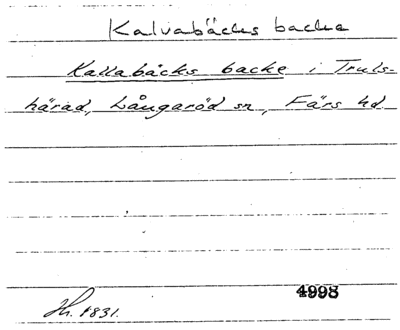 Kalvabäcks backe
Kallabäcks backe i Truls-
härad, Långaröd sn, Färs hd.
4998
Hh. 1831.